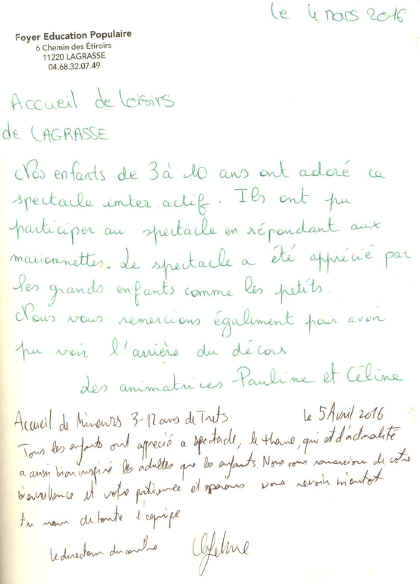 le 4 mars 2016
Foyer Education Populaire
6 Chemin des Étiroirs
11220 LAGRASSE
04.68.32.07.49
Accueil de Loisirs
de LAGRASSE
Nos enfants de 3 à 10 ans ont adoré ce
spectacle inter actif. Ils ont pu
participer au spectacle en répondant aux
marionnettes. Le spectacle a été apprécié par
les grands enfants comme les petits.
Nous vous remercions également pour avoir
pu voir l'arrière du décor
des animatrices Pauline et Céline
Accueil de Mineurs 3-12 ans de Trets le 5 Avril 2016
Tous les enfants ont apprécié ce spectacle, le thème, qui est d'actualité
a aussi bien inspiré les adultes que les enfants. Nous vous remercions de votre
bienveillance et votre patience et espérons vous revoir bientôt
au nom de toute l'équipe
Le directeur du centre